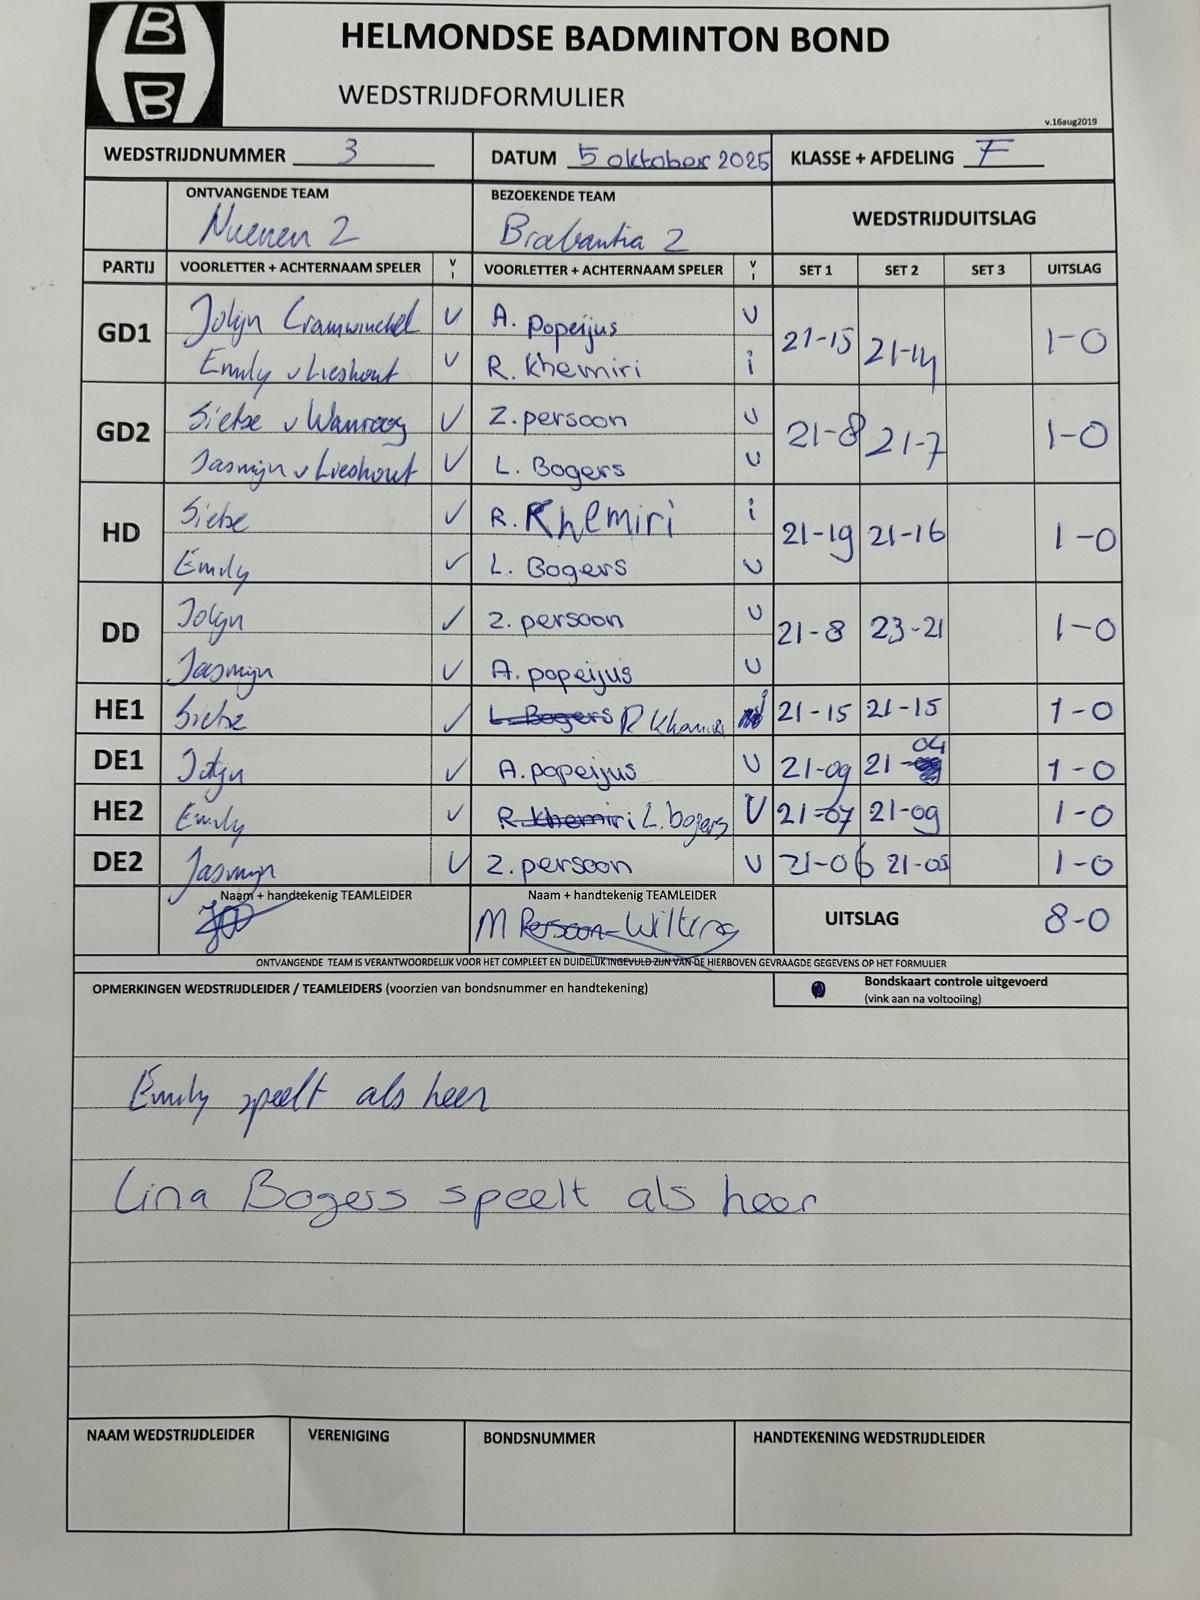 B
B
HELMONDSE BADMINTON BOND
WEDSTRIJDFORMULIER
v.16aug2019
WEDSTRIJDNUMMER 3 DATUM 5 oktober 2025 KLASSE + AFDELING F
ONTVANGENDE TEAM BEZOEKENDE TEAM WEDSTRIJDUITSLAG
Nuenen 2 Brabantia 2
PARTIJ VOORLETTER + ACHTERNAAM SPELER V I VOORLETTER + ACHTERNAAM SPELER V I SET 1 SET 2 SET 3 UITSLAG
GD1 Jolijn Cramwinckel V A. Popeijus U 21-15 21-14 1-0
Emily v Lieshout V R. Khemiri i
GD2 Sietse v Wanrooy V Z. persoon U 21-8 21-7 1-0
Jasmijn v Lieshout V L. Bogers U
HD Sietse V R. Khemiri i 21-19 21-16 1-0
Emily V L. Bogers U
DD Jolijn V Z. persoon U 21-8 23-21 1-0
Jasmijn V A. popeijus U
HE1 Sietse V L. Bogers R Khemiri i 21-15 21-15 1-0
DE1 Jolijn V A. popeijus U 21-09 21-04 1-0
HE2 Emily V R. Khemiri L. bogers U 21-07 21-09 1-0
DE2 Jasmijn V Z. persoon U 21-06 21-05 1-0
Naam + handtekenig TEAMLEIDER Naam + handtekenig TEAMLEIDER UITSLAG 8-0
M Persoon-Wilting
ONTVANGENDE TEAM IS VERANTWOORDELIJK VOOR HET COMPLEET EN DUIDELIJK INGEVULD ZIJN VAN DE HIERBOVEN GEVRAAGDE GEGEVENS OP HET FORMULIER
OPMERKINGEN WEDSTRIJDLEIDER / TEAMLEIDERS (voorzien van bondsnummer en handtekening) Bondskaart controle uitgevoerd
(vink aan na voltooiing)
Emily speelt als heer
Lina Bogers speelt als heer
NAAM WEDSTRIJDLEIDER VERENIGING BONDSNUMMER HANDTEKENING WEDSTRIJDLEIDER